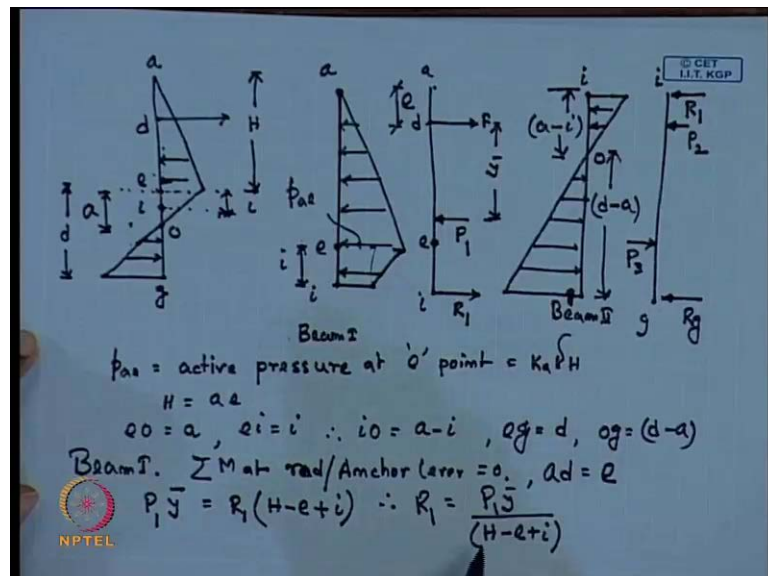 © CET
I.I.T. KGP
a
d
H
e
i
i
a
o
d
g
a
pae
e
i
i
Beam I
a
e
d
F
ȳ
P₁
e
i
R₁
i
(a-i)
o
(d-a)
Beam II
i
R₁
P₂
P₃
g
Rg
pae = active pressure at 'o' point = Ka γ H
H = ae
eo = a, ei = i ∴ io = a-i, eg = d, og = (d-a)
Beam I. ΣM at rod/Anchor laver = 0, ad = e
P₁ ȳ = R₁ (H-e+i) ∴ R₁ = P₁ȳ / (H-e+i)
NPTEL